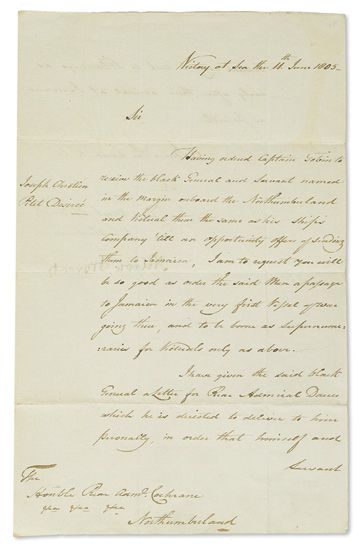 Victory at Sea the 11th June 1805
Sir
Having ordered Captain Tobin to
receive the black General and Servant named
in the margin onboard the Northumberland
Joseph Chretien
Petit Desireé
and Victual them the same as his Ships
Company 'till an opportunity offers of sending
them to Jamaica, I am to request you will
be so good as order the said Men a passage
to Jamaica in the very first Vessel of war
going there, and to be borne as Supernume-
-raries for Victuals only as above.
I have given the said black
General a Letter for Rear Admiral Dacres
which he is directed to deliver to him
personally, in order that himself and
Servant
The
Honble Rear Adml. Cochrane
Northumberland